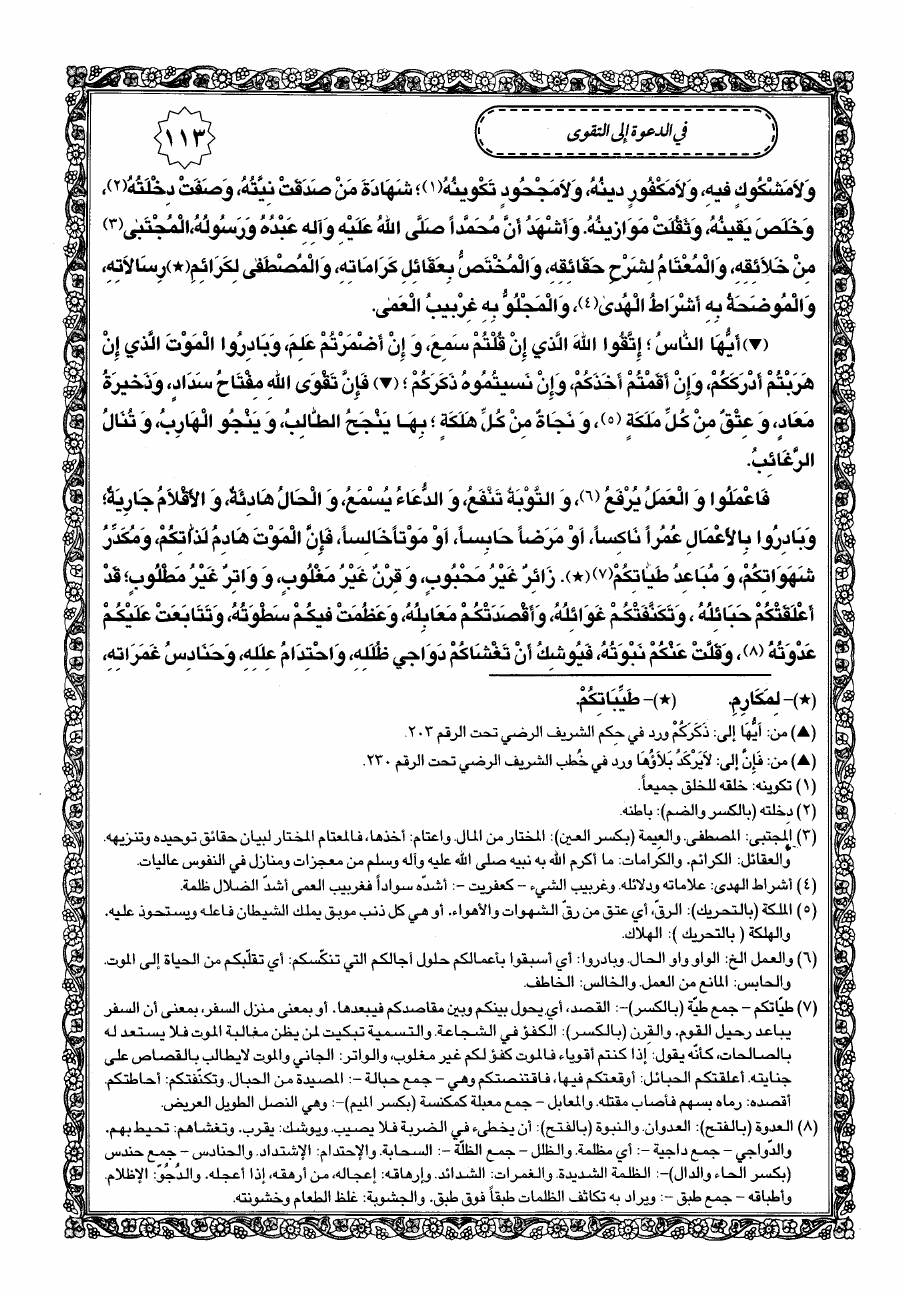 في الدعوة إلى التقوى
١١٣
وَلاَ مَشْكُوكٍ فيهِ، وَلاَ مَكْفُورٍ دينُهُ، وَلاَ مَجْحُودٍ تَكْوينُهُ(١)؛ شَهَادَةَ مَنْ صَدَقَتْ نِيَّتُهُ، وَصَفَتْ دِخْلَتُهُ(٢)،
وَخَلَصَ يَقينُهُ، وَثَقُلَتْ مَوَازينُهُ. وَأَشْهَدُ أَنَّ مُحَمَّداً صَلَّى اللهُ عَلَيْهِ وَآلِهِ عَبْدُهُ وَرَسُولُهُ، الْمُجْتَبى(٣)
مِنْ خَلاَئِقِهِ، وَالْمُعْتَامُ لِشَرْحِ حَقَائِقِهِ، وَالْمُخْتَصُّ بِعَقَائِلِ كَرَامَاتِهِ، وَالْمُصْطَفى لِكَرَائِمِ(★) رِسَالاَتِهِ،
وَالْمُوضَحَةُ بِهِ أَشْرَاطُ الْهُدى(٤)، وَالْمَجْلُوُّ بِهِ غِرْبيبُ الْعَمى.
(▼) أَيُّهَا النَّاسُ؛ إِتَّقُوا اللهَ الَّذي إِنْ قُلْتُمْ سَمِعَ، وَ إِنْ أَضْمَرْتُمْ عَلِمَ، وَبَادِرُوا الْمَوْتَ الَّذي إِنْ
هَرَبْتُمْ أَدْرَكَكُمْ، وَإِنْ أَقَمْتُمْ أَخَذَكُمْ، وَإِنْ نَسيتُمُوهُ ذَكَرَكُمْ؛ (▼) فَإِنَّ تَقْوَى اللهِ مِفْتَاحُ سَدَادٍ، وَذَخيرَةُ
مَعَادٍ، وَ عِتْقٌ مِنْ كُلِّ مَلَكَةٍ (٥)، وَ نَجَاةٌ مِنْ كُلِّ هَلَكَةٍ؛ بِهَا يَنْجَحُ الطَّالِبُ، وَ يَنْجُو الْهَارِبُ، وَ تُنَالُ
الرَّغَائِبُ.
فَاعْمَلُوا وَ الْعَمَلُ يُرْفَعُ (٦)، وَ التَّوْبَةُ تَنْفَعُ، وَ الدُّعَاءُ يُسْمَعُ، وَ الْحَالُ هَادِئَةٌ، وَ الأَقْلاَمُ جَارِيَةٌ؛
وَبَادِرُوا بِالأَعْمَالِ عُمُراً نَاكِساً، أَوْ مَرَضاً حَابِساً، أَوْ مَوْتاً خَالِساً، فَإِنَّ الْمَوْتَ هَادِمُ لَذَّاتِكُمْ، وَمُكَدِّرُ
شَهَوَاتِكُمْ، وَ مُبَاعِدُ طِيَّاتِكُمْ(٧)(★). زَائِرٌ غَيْرُ مَحْبُوبٍ، وَ قِرْنٌ غَيْرُ مَغْلُوبٍ، وَ وَاتِرٌ غَيْرُ مَطْلُوبٍ؛ قَدْ
أَعْلَقَتْكُمْ حَبَائِلُهُ، وَتَكَنَّفَتْكُمْ غَوَائِلُهُ، وَأَقْصَدَتْكُمْ مَعَابِلُهُ، وَعَظُمَتْ فيكُمْ سَطْوَتُهُ، وَتَتَابَعَتْ عَلَيْكُمْ
عَدْوَتُهُ (٨)، وَقَلَّتْ عَنْكُمْ نَبْوَتُهُ، فَيُوشِكُ أَنْ تَغْشَاكُمْ دَوَاجي ظُلَلِهِ، وَاحْتِدَامُ عِلَلِهِ، وَحَنَادِسُ غَمَرَاتِهِ،
(★)- لِمَكَارِمِ. (★)- طَيِّبَاتِكُمْ.
(▲) من: أَيُّهَا إلى: ذَكَرَكُمْ ورد في حِكم الشريف الرضي تحت الرقم ٢٠٣.
(▲) من: فَإِنَّ إلى: لاَيَرْكَدُ بَلاَؤُهَا ورد في خُطب الشريف الرضي تحت الرقم ٢٣٠.
(١) تكوينه: خلقه للخلق جميعاً.
(٢) دِخلته (بالكسر والضم): باطنه.
(٣) المجتبى: المصطفى. والعِيمة (بكسر العين): المختار من المال. واعتام: أخذها، فالمعتام المختار لبيان حقائق توحيده وتنزيهه.
والعقائل: الكرائم. والكرامات: ما أكرم الله به نبيه صلى الله عليه وآله وسلم من معجزات ومنازل في النفوس عاليات.
(٤) أشراط الهدى: علاماته ودلائله. وغربيب الشيء - كعفريت -: أشدّه سواداً فغربيب العمى أشدّ الضلال ظلمة.
(٥) الملكة (بالتحريك): الرقّ، أي عتق من رقّ الشهوات والأهواء. أو هي كل ذنب موبق يملك الشيطان فاعله ويستحوذ عليه.
والهلكة ( بالتحريك ): الهلاك.
(٦) والعمل الخ: الواو واو الحال. وبادروا: أي أسبقوا بأعمالكم حلول آجالكم التي تنكّسكم: أي تقلّبكم من الحياة إلى الموت.
والحابس: المانع من العمل. والخالس: الخاطف.
(٧) طيّاتكم - جمع طيّة (بالكسر)-: القصد، أي يحول بينكم وبين مقاصدكم فيبعدها. أو بمعنى منزل السفر، بمعنى أن السفر
يباعد رحيل القوم. والقرن (بالكسر): الكفؤ في الشجاعة. والتسمية تبكيت لمن يظن مغالبة الموت فلا يستعد له
بالصالحات، كأنّه يقول: إذا كنتم أقوياء فالموت كفؤ لكم غير مغلوب. والواتر: الجاني والموت لايطالب بالقصاص على
جنايته. أعلقتكم الحبائل: أوقعتكم فيها، فاقتنصتكم وهي - جمع حبالة -: المصيدة من الحبال. وتكنّفتكم: أحاطتكم.
أقصده: رماه بسهم فأصاب مقتله. والمعابل - جمع معبلة كمكنسة (بكسر الميم)-: وهي النصل الطويل العريض.
(٨) العدوة (بالفتح): العدوان. والنبوة (بالفتح): أن يخطىء في الضربة فلا يصيب. ويوشك: يقرب. وتغشاهم: تحيط بهم.
والدّواجي - جمع داجية -: أي مظلمة. والظلل - جمع الظلّة -: السحابة. والإحتدام: الإشتداد. والحنادس - جمع حندس
(بكسر الحاء والدال)-: الظلمة الشديدة. والغمرات: الشدائد. وإرهاقه: إعجاله، من أرهقه، إذا أعجله. والدُجُوّ: الإظلام.
وأطباقه - جمع طبق -: ويراد به تكاثف الظلمات طبقاً فوق طبق. والجشوبة: غلظ الطعام وخشونته.